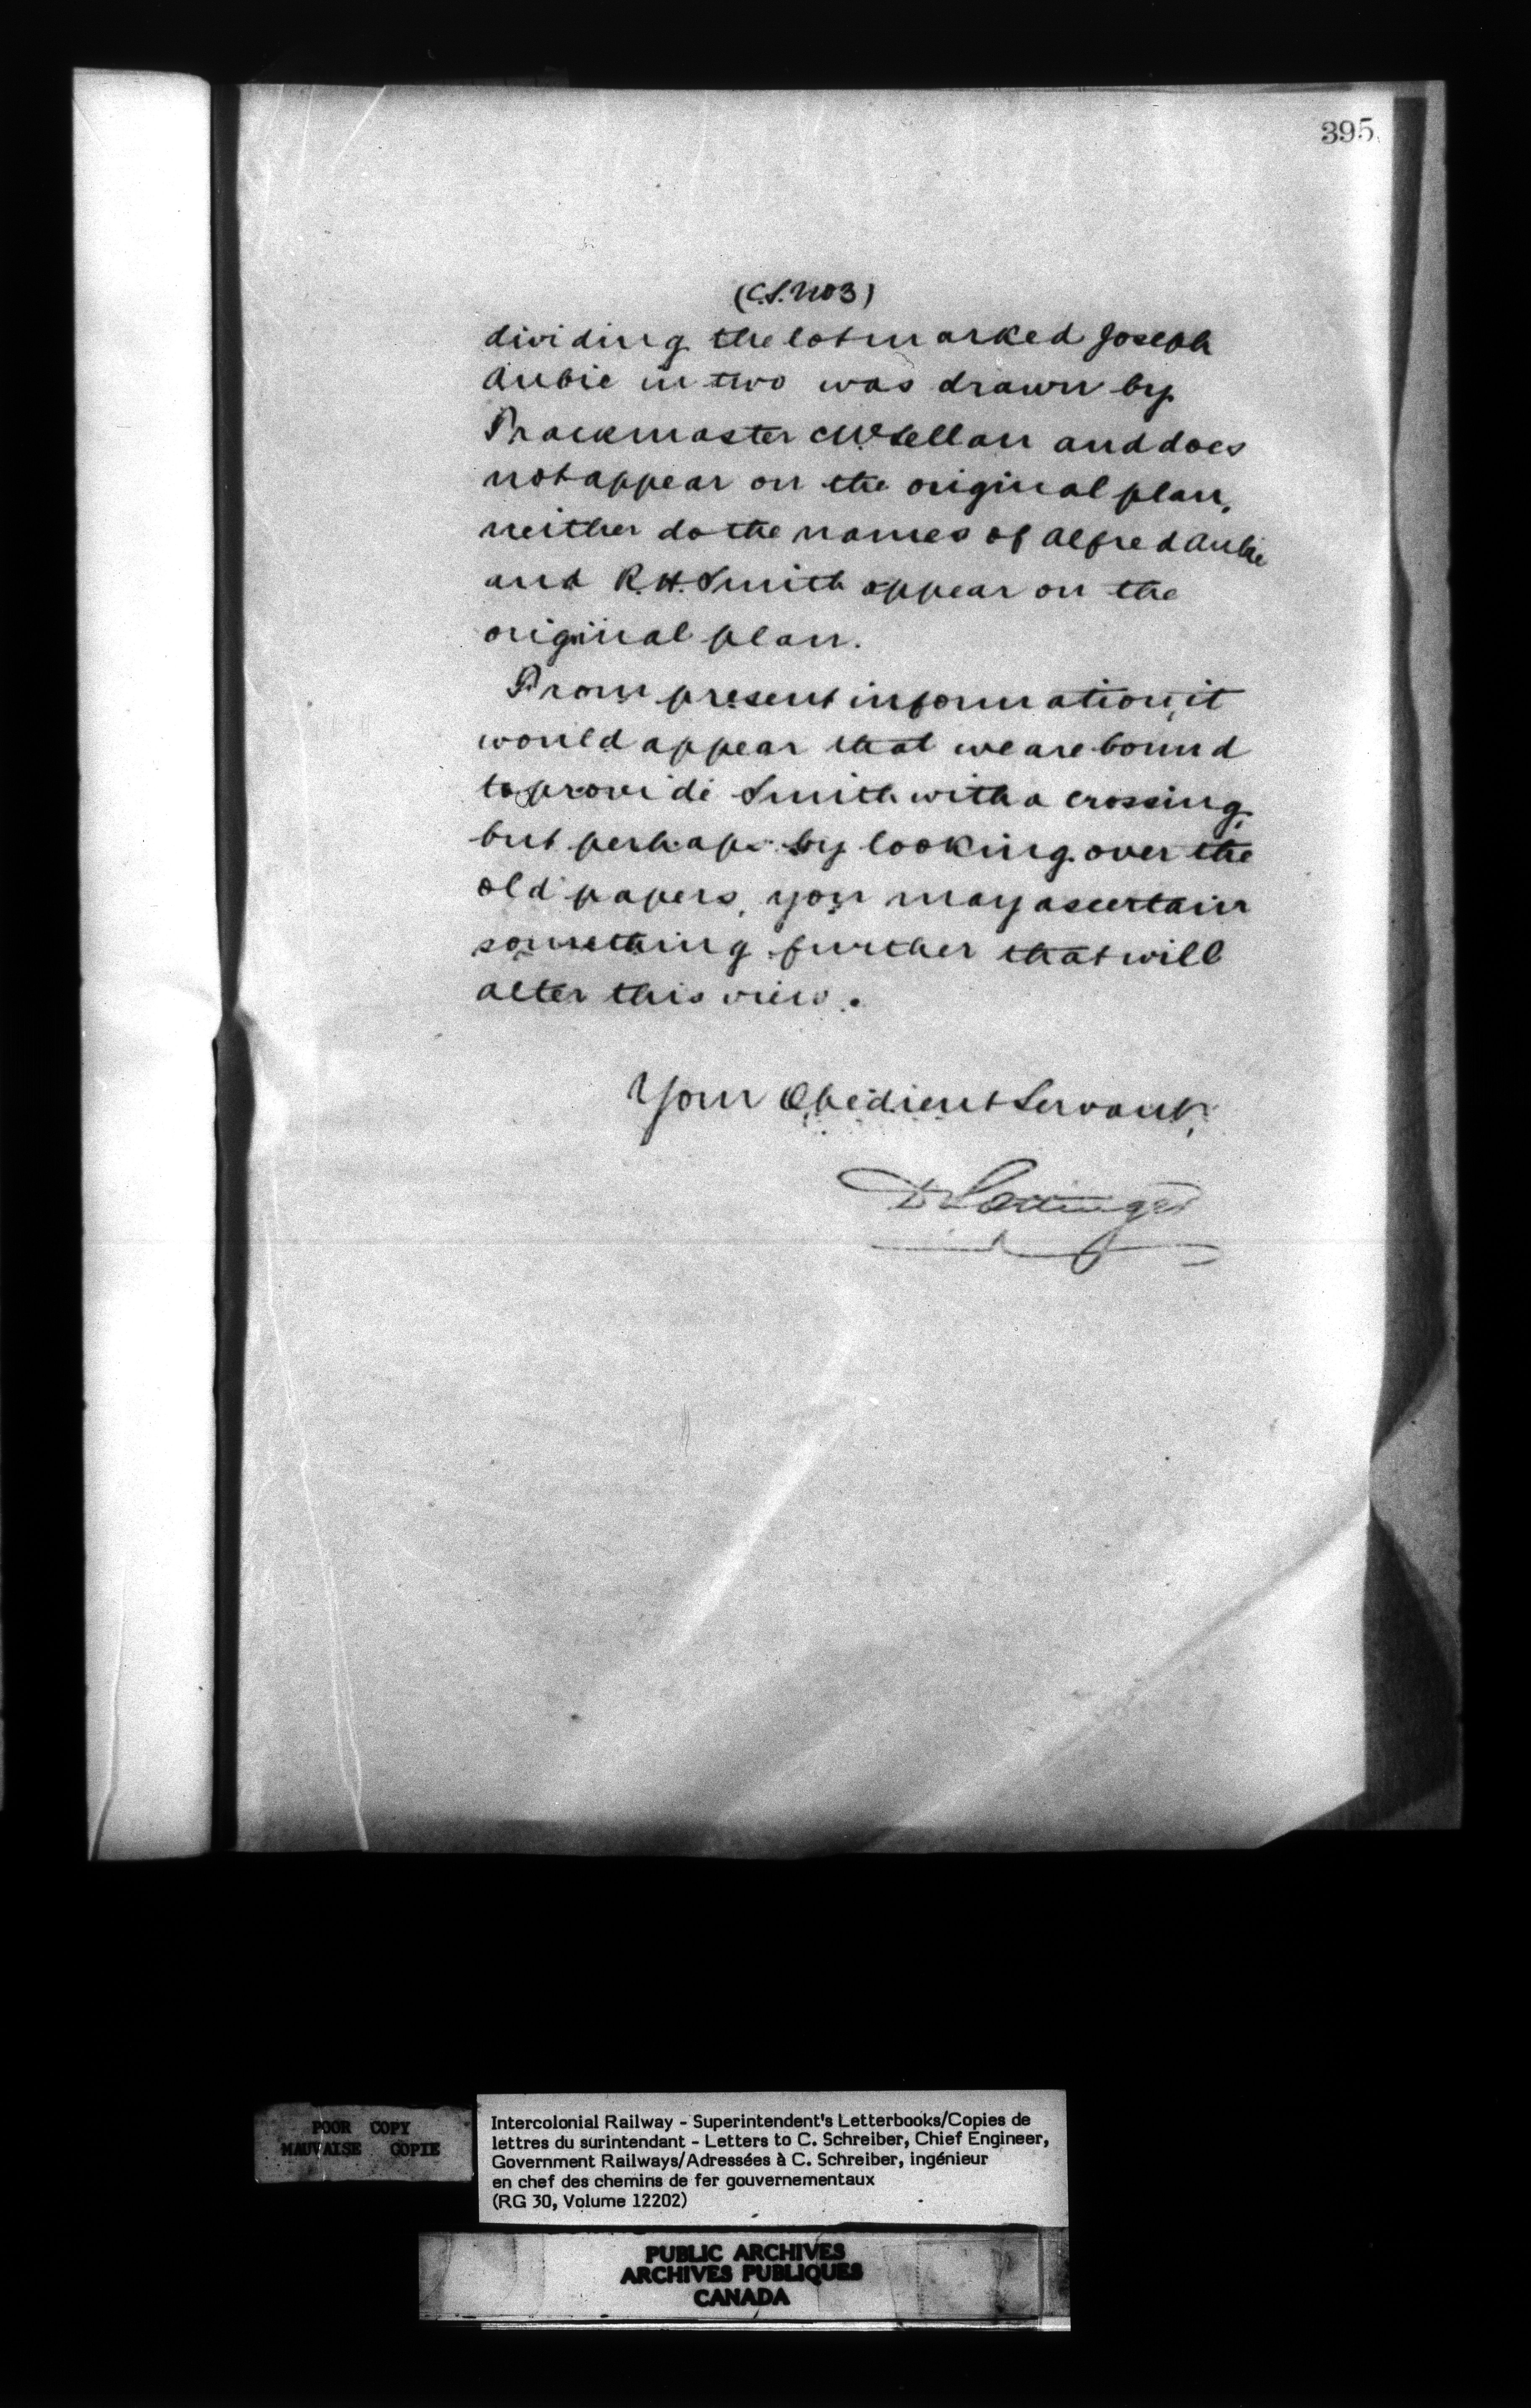 395
(C.S. No 3)
dividing the lot marked Joseph
Aubie in two was drawn by
Trackmaster McLellan and does
not appear on the original plan,
neither do the names of Alfred Aubie
and R. H. Smith appear on the
original plan.
From present information, it
would appear that we are bound
to provide Smith with a crossing,
but perhaps by looking over the
old papers, you may ascertain
something further that will
alter this view.
Your Obedient Servant,
D Pottinger
POOR COPY
MAUVAISE COPIE
Intercolonial Railway - Superintendent's Letterbooks/Copies de
lettres du surintendant - Letters to C. Schreiber, Chief Engineer,
Government Railways/Adressées à C. Schreiber, ingénieur
en chef des chemins de fer gouvernementaux
(RG 30, Volume 12202)
PUBLIC ARCHIVES
ARCHIVES PUBLIQUES
CANADA